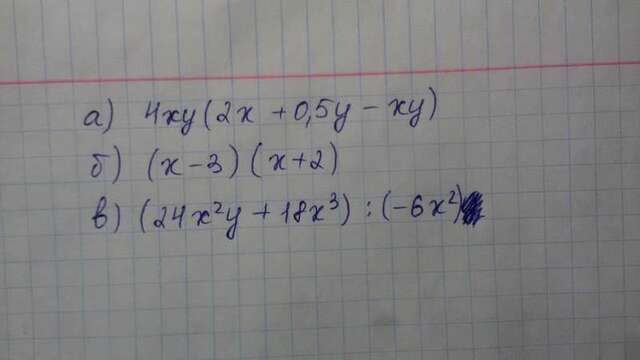 а) 4xy(2x + 0,5y - xy)
б) (x - 3)(x + 2)
в) (24x²y + 18x³) : (-6x²)